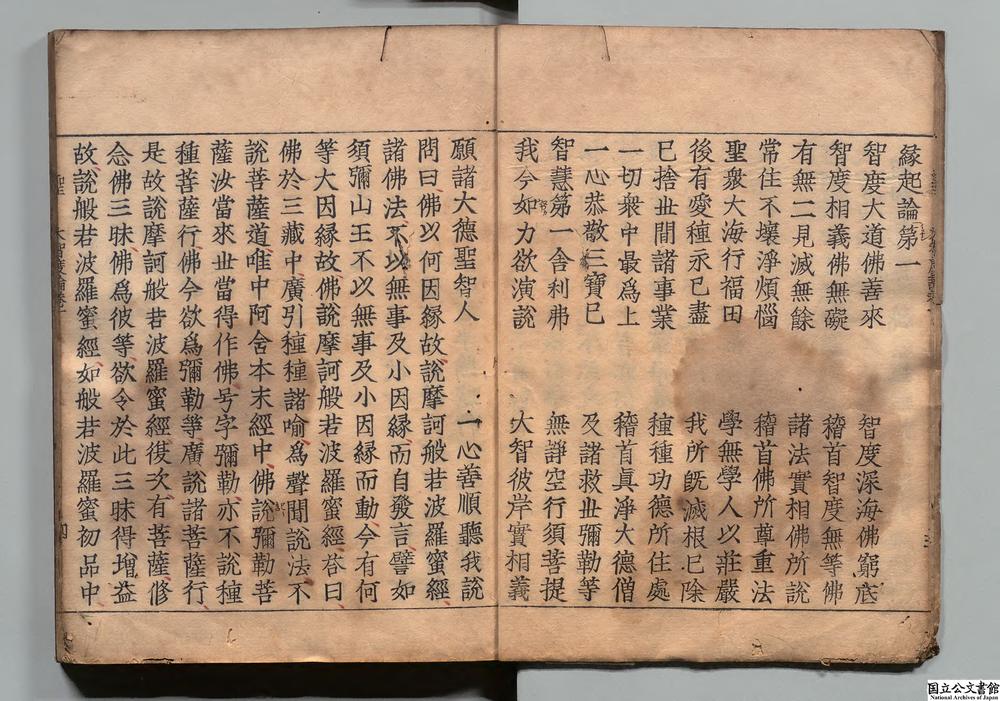 緣起論第一
智度大道佛善來 智度深海佛窮底
智度相義佛無礙 稽首智度無等佛
有無二見滅無餘 諸法實相佛所說
常住不壞淨煩惱 稽首佛所尊重法
聖衆大海行福田 學無學人以莊嚴
後有愛種永已盡 我所旣滅根已除
已捨世間諸事業 種種功德所住處
一切衆中最爲上 稽首眞淨大德僧
一心恭敬三寶已 及諸救世彌勒等
智慧第一舍利弗 無諍空行須菩提
我今如力欲演說 大智彼岸實相義
願諸大德聖智人 一心善順聽我說
問曰佛以何因緣故說摩訶般若波羅蜜經
諸佛法不以無事及小因緣而自發言譬如
須彌山王不以無事及小因緣而動今有何
等大因緣故佛說摩訶般若波羅蜜經答曰
佛於三藏中廣引種種諸喻爲聲聞說法不
說菩薩道唯中阿含本末經中佛說彌勒菩
薩汝當來世當得作佛号字彌勒亦不說種
種菩薩行佛今欲爲彌勒等廣說諸菩薩行
是故說摩訶般若波羅蜜經復次有菩薩修
念佛三昧佛爲彼等欲令於此三昧得增益
故說般若波羅蜜經如般若波羅蜜初品中
聖 大智度論卷一 四
国立公文書館
National Archives of Japan